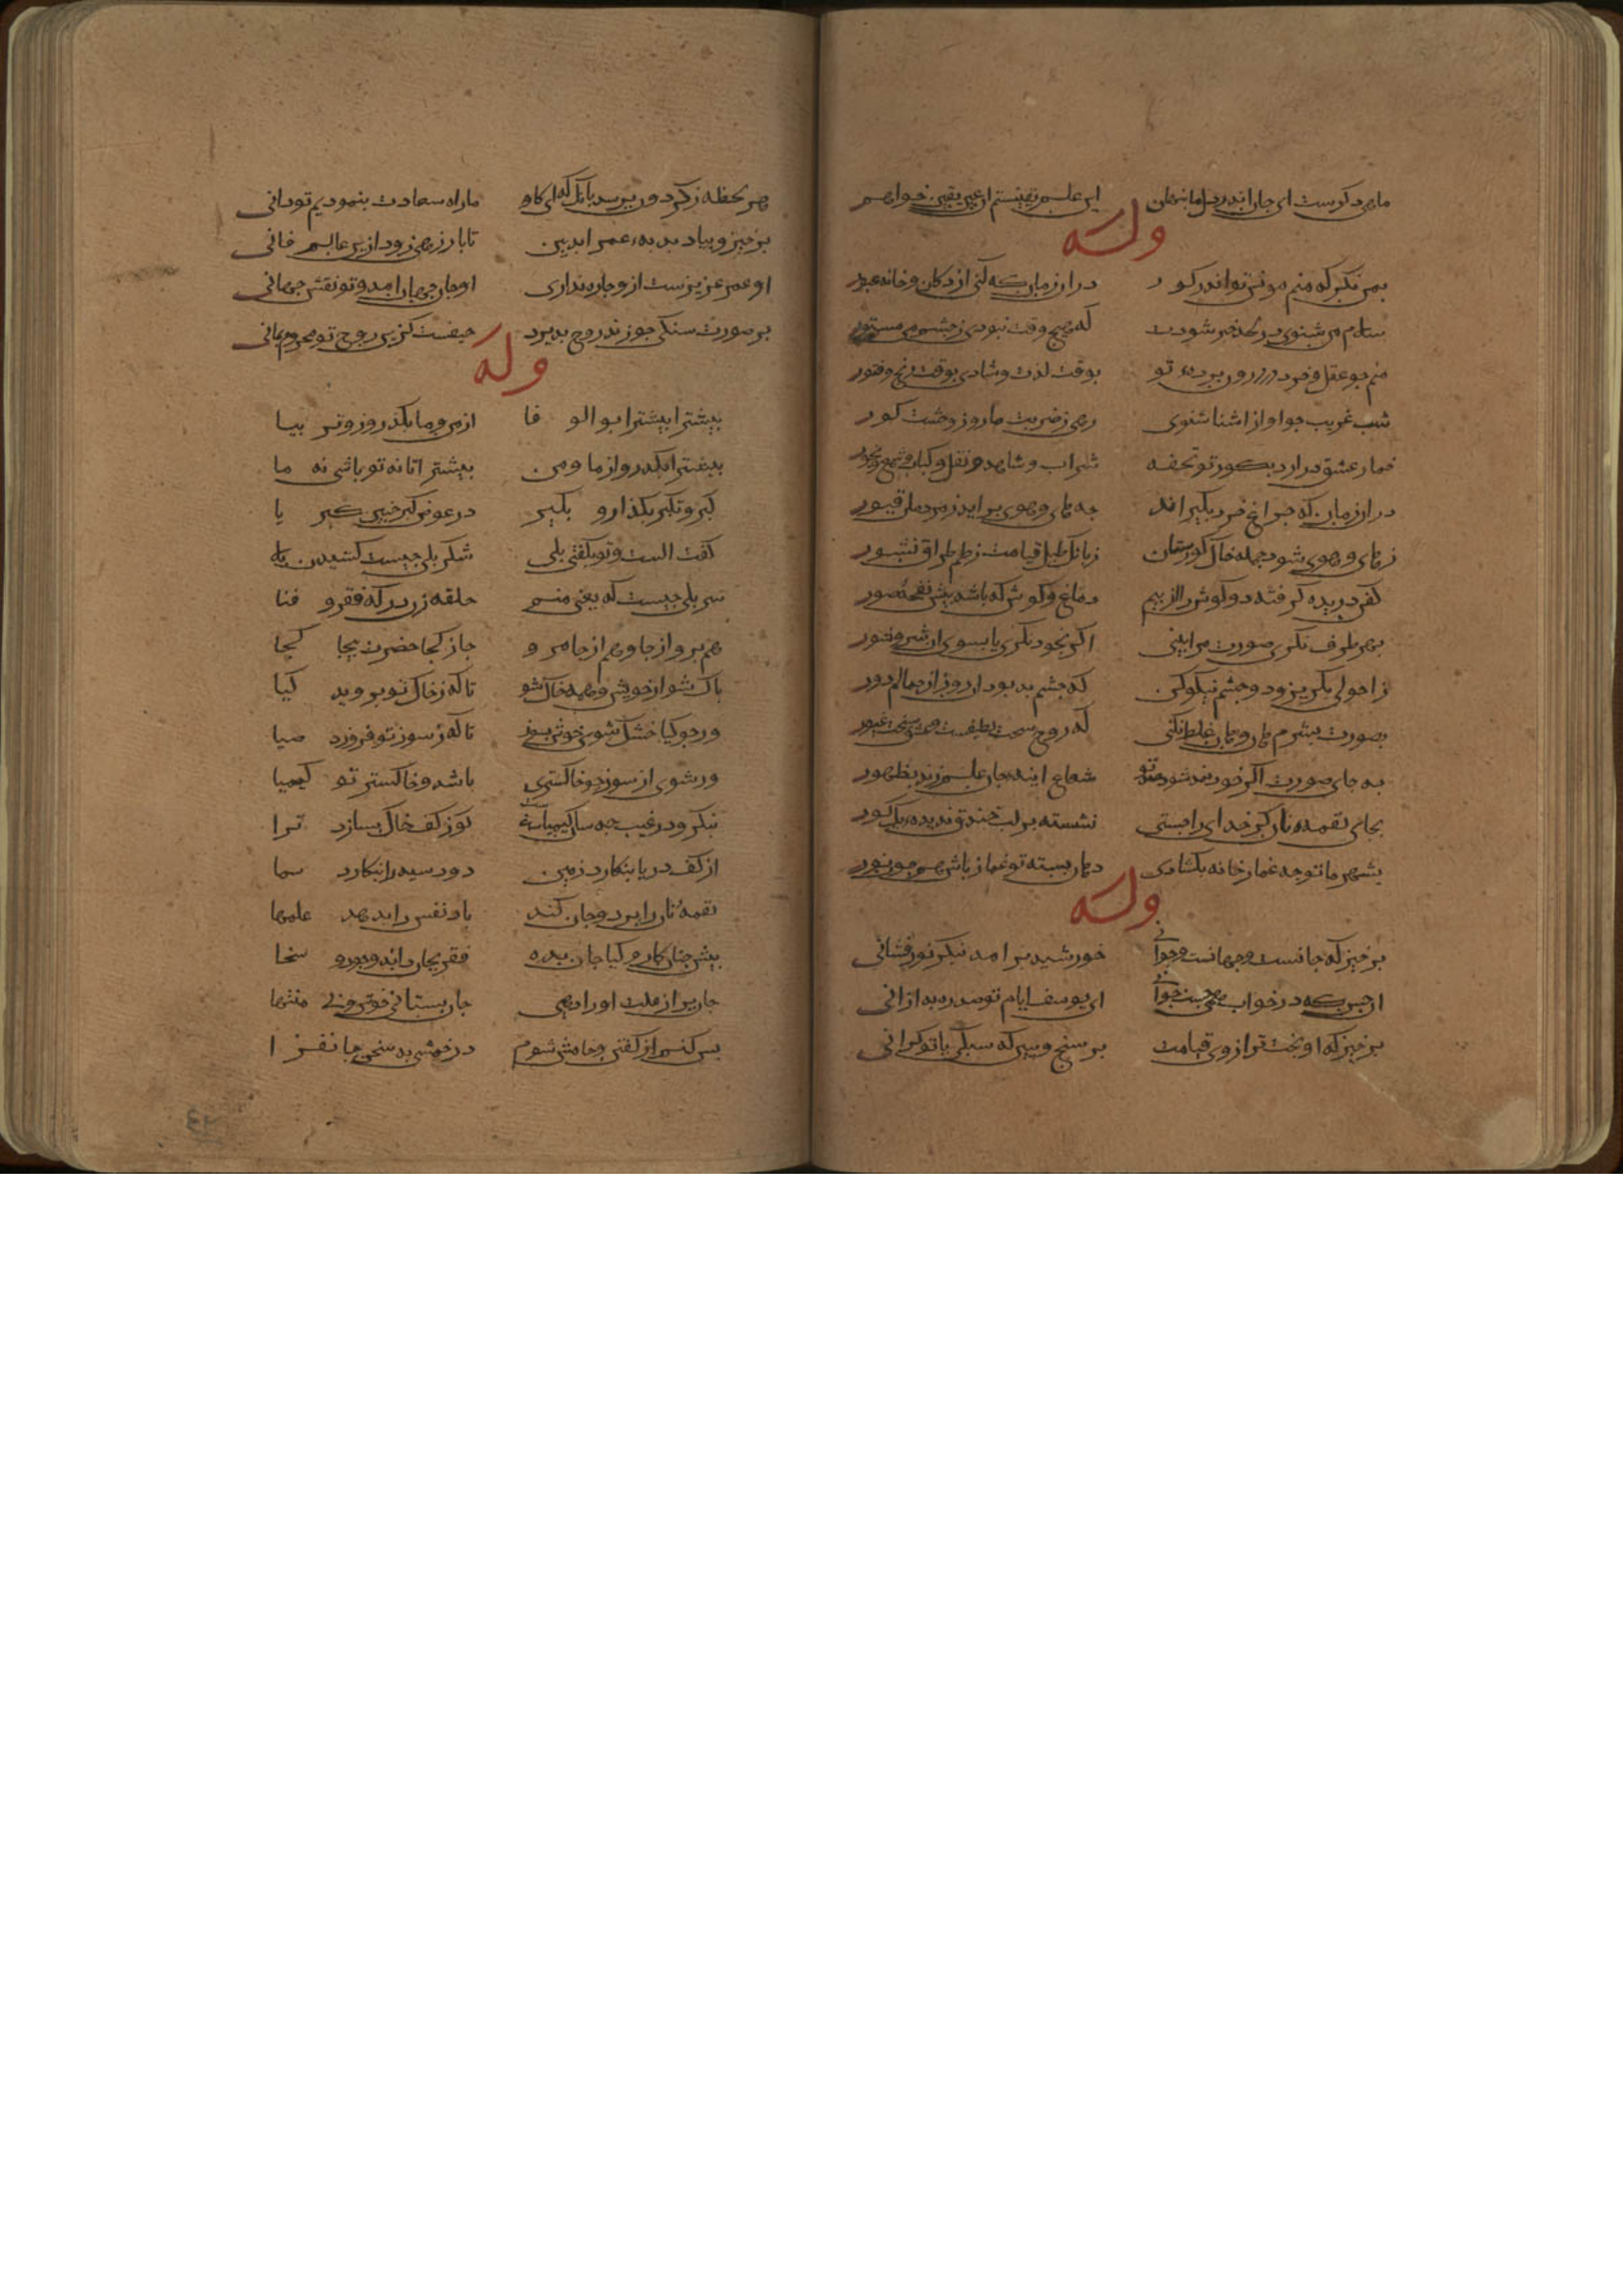 ماهی دگرست ای جان اندر دل ما پنهان این علم یقینستم از عین یقین خواهم
وله
بمن نگر که منم مونس تو اندر کور در ان زمان که کنی از دکان و خانه عبور
سلام من شنوی در لحد خبر شودت که هیچ وقت نبودی ز چشم من مستور
منم جو عقل و خرد در درون برده تو بوقت لذت و شادی بوقت رنج و فتور
شب غریب جو اواز اشنا شنوی رهی ز ضربت مار و ز وحشت کور
خمار عشق درارد بکور تو تحفه شراب و شاهد و نقل و کباب و شمع و بخور
در ان زمان که جراغ خرد بگیراند جه های و هوی براید ز مردمان قبور
ز های و هوی شود جمله خاک کورستان ز بانگ طبل قیامت ز طمطراق نشور
کفن دریده گرفته دو کوش را از بیم دماغ و کوش که باشد بیش نفخه صور
بهر طرف نگری صورت مرا بینی اگر بخود نگری یا بسوی ان شر و شور
ز احولی بگریز و دو جشم نیکو کن که جشم بد بود ان روز از جمالم دور
بصورت بشرم هان و هان غلط نکنی که روح سخت لطیفست و عشق سخت غیور
به جای صورت اگر خود نمد شود صدتو شعاع اینه جان علم زند بظهور
بجای لقمه و نان گر خدای را جستی نشسته بر لب خندق ندیده یک کور
بشهر ما تو جه غماز خانه بکشادی دهان بسته تو غماز باش همجو نور
وله
برخیز که جانست و جهانست و جوانی خورشید برامد بنگر نور فشانی
ان حسن که در خواب همی جست جوانی ای یوسف ایام تو صد ره به از انی
برخیز که اویخت ترازوی قیامت برسنج و ببین که سبکی یا تو گرانی
هر لحظه ز گردون برسد بانگ که ای کاو ما راه سعادت بنمودیم تو دانی
برخیز و بیاد بده عمر ابد بین تا باز رهی زود ازین عالم فانی
او عمر عزیزست ازو جاره نداری او جان جهان امد و تو نقش جهانی
بر صورت سنگی جو زند روح بذیرد حیفست کزین روح تو محروم بمانی
وله
بیشترا بیشترا بو الوفا از من و ما بگذر و زوتر بیا
بیشترا بگذر و از ما و من بیشتر اتا نه تو باشی نه ما
کبر و تکبر بگذار و بگیر در عوض کبر جنین کبریا
گفت الست و تو بگفتی بلی شکر بلی جیست کشیدن بلا
سر بلی جیست که یعنی منم حلقه زن درگه فقر و فنا
هم برو از جا و هم از جا مرو جا ز کجا حضرت بیجا کجا
باک شو از خویش و همه خاک شو تا که ز خاک تو بروید گیا
ور جو گیا خشک شوی خوش بسوز تا که ز سوز تو فروزد ضیا
ور شوی از سوز جو خاکستری باشد و خاکستر تو کیمیا
بنگر و در غیب جه سان کیمیاست کوز کف خاک بسازد ترا
از کف دریا بنگارد زمین دود سیه را بنگارد سما
لقمه نان را برد و جان کند باد نفس را بدهد علمها
بیش جنان کار و کیا جان بده فقر بجان داند و جود و سخا
جان بر از علت او را دهی جان بستانی خوش و بی منتها
بس کنم از گفتن و خامش شوم در خمشی به سخن جان فزا